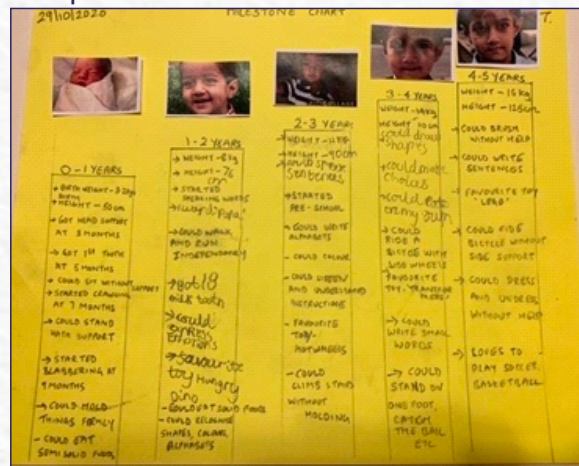 29/10/2020
MILESTONE CHART
T.
0-1 YEARS
BIRTH WEIGHT
HEIGHT - 50cm
GOT HEAD SUPPORT
AT 3 MONTHS
GOT 1ST TOOTH
AT 5 MONTHS
COULD SIT WITHOUT SUPPORT
STARTED CRAWLING
AT 7 MONTHS
COULD STAND
WITH SUPPORT
STARTED
BLABBERING AT
9 MONTHS
COULD HOLD
THINGS FIRMLY
- COULD EAT
SEMI SOLID FOODS
1-2 YEARS
WEIGHT
HEIGHT - 76
cm
STARTED
SPEAKING WORDS
"PAPA"
COULD WALK
AND RUN
INDEPENDANTLY
got 18
milk tooth
could
express
emotions
favourite
toy Hungry
Dino
- COULD EAT SOLID FOODS
- COULD RECOGNISE
SHAPES, COLOUR,
ALPHABETS
2-3 YEARS
WEIGHT
HEIGHT - 90cm
could speak
sentences
STARTED
PRE-SCHOOL
COULD WRITE
ALPHABETS
- COULD COLOUR
- COULD LISTEN
AND UNDERSTAND
INSTRUCTIONS
- FAVOURITE
TOY-
HOTWHEELS
- COULD
CLIMB STAIRS
WITHOUT
HOLDING
3-4 YEARS
WEIGHT
HEIGHT
could draw
shapes
could make
choices
could
on my own
COULD
RIDE A
BICYCLE WITH
WHEELS
FAVORITE
TOY-
→ COULD
WRITE SMALL
WORDS
→ COULD
STAND ON
ONE FOOT,
CATCH
THE BALL
ETC
4-5 YEARS
WEIGHT
HEIGHT - 125cm
COULD BRUSH
WITHOUT HELP
COULD WRITE
SENTENCES
FAVOURITE TOY
COULD RIDE
BICYCLE WITHOUT
SIDE SUPPORT
→ COULD DRESS
AND UNDRESS
WITHOUT HELP
→ LOVES TO
PLAY SOCCER,
BASKETBALL